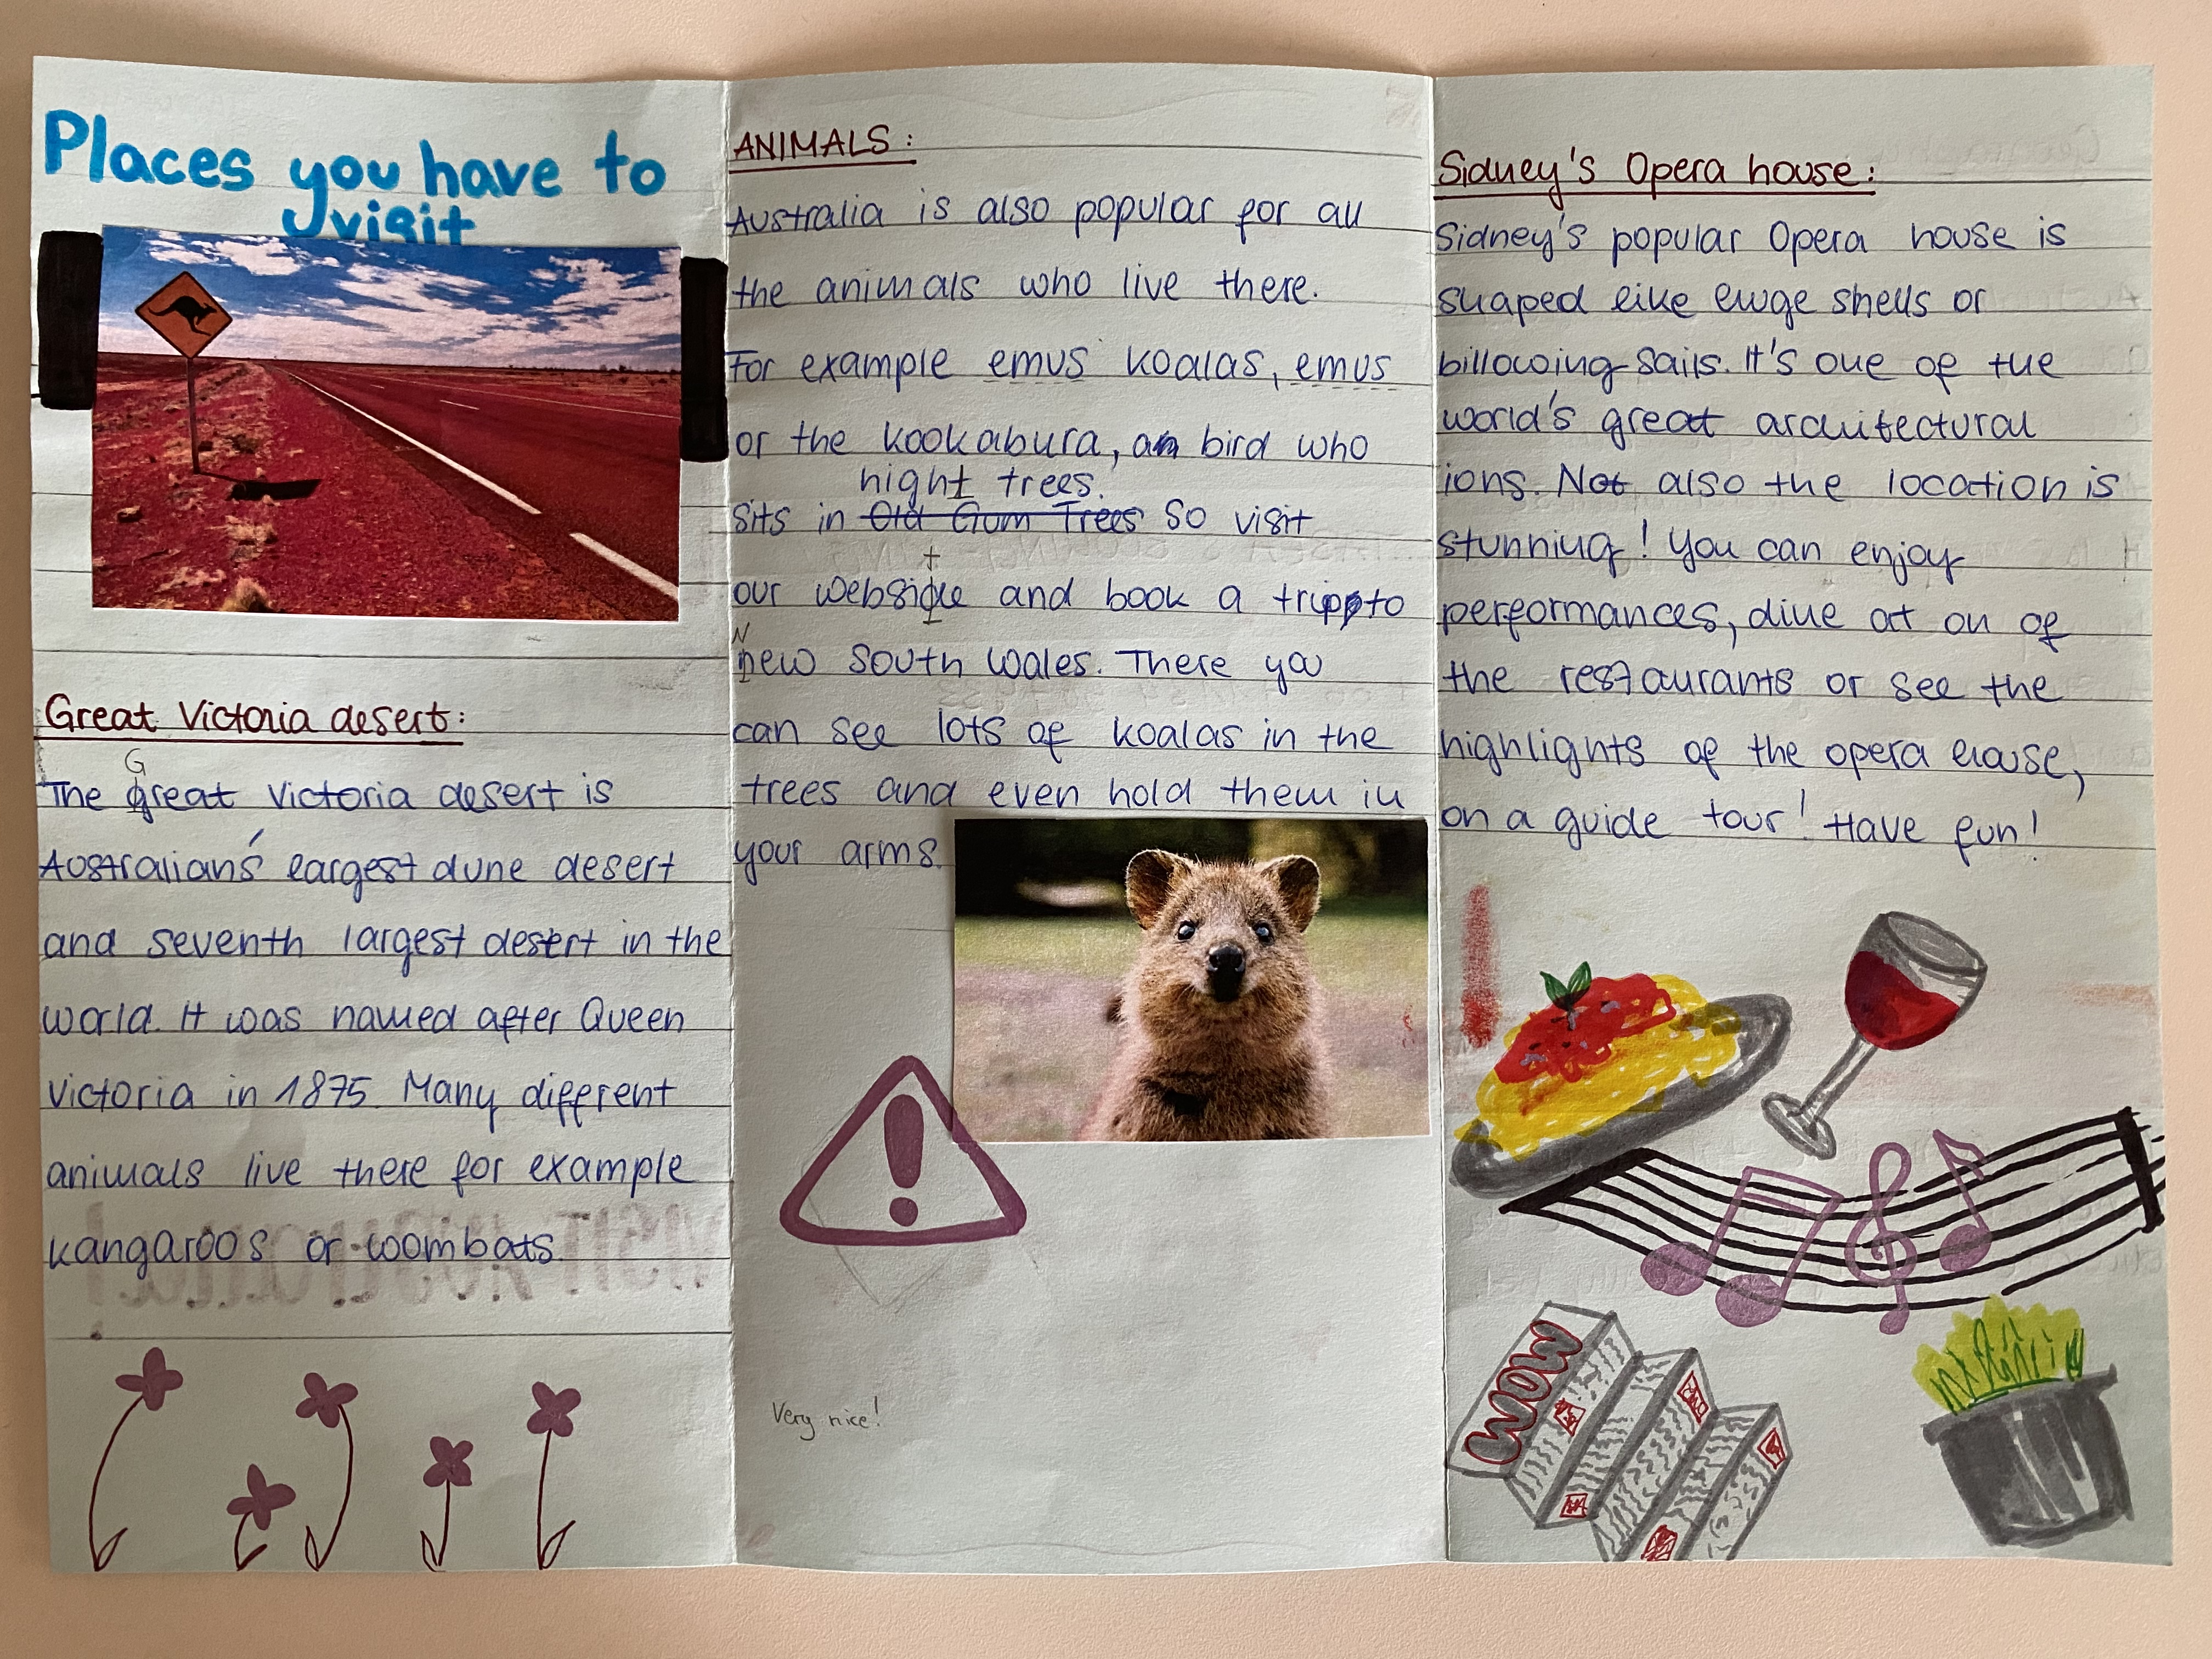 Places you have to
visit
Great Victoria desert:
G
The great Victoria desert is
Australian's largest dune desert
and seventh largest desert in the
world. It was named after Queen
Victoria in 1875. Many different
animals live there for example
kangaroos or woombats.
ANIMALS:
Australia is also popular for all
the animals who live there.
For example emus koalas, emus
or the kookabura, an bird who
night trees.
sits in Old Gum Trees So visit
t
our website and book a trip to
N
new south wales. There you
can see lots of koalas in the
trees and even hold them in
your arms.
Very nice!
Sidney's Opera house:
Sidney's popular Opera house is
shaped like huge shells or
billowing sails. It's one of the
world's great architectural
ions. Not also the location is
stunning! You can enjoy
performances, dine at on of
the restaurants or see the
highlights of the opera house,
on a guide tour! Have fun!
WOW